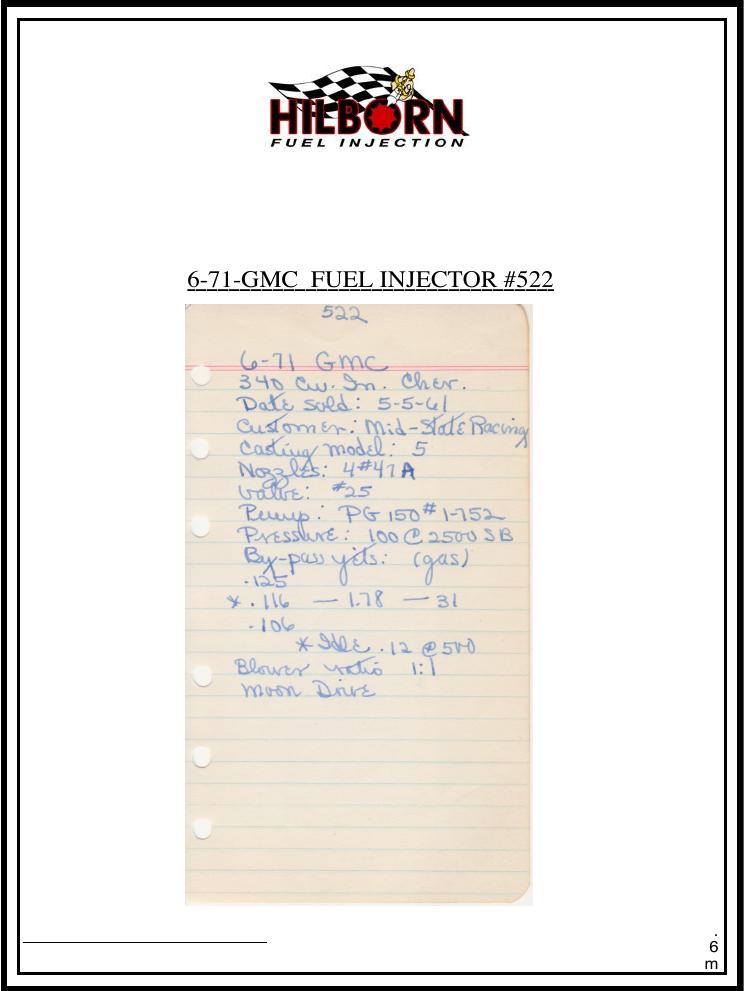 HILBORN
FUEL INJECTION
6-71-GMC FUEL INJECTOR #522
522
6-71 GMC
340 Cu. In. Chev.
Date sold: 5-5-61
Customer: Mid-State Racing
Casting model: 5
Nozzles: 4#47A
Valve: #25
Pump: PG 150# 1-752
Pressure: 100 @ 2500 SB
By-pass jets: (gas)
.125
* .116 — 1.78 — 31
.106
* Idle .12 @ 500
Blower ratio 1:1
Moon Drive
.
6
m